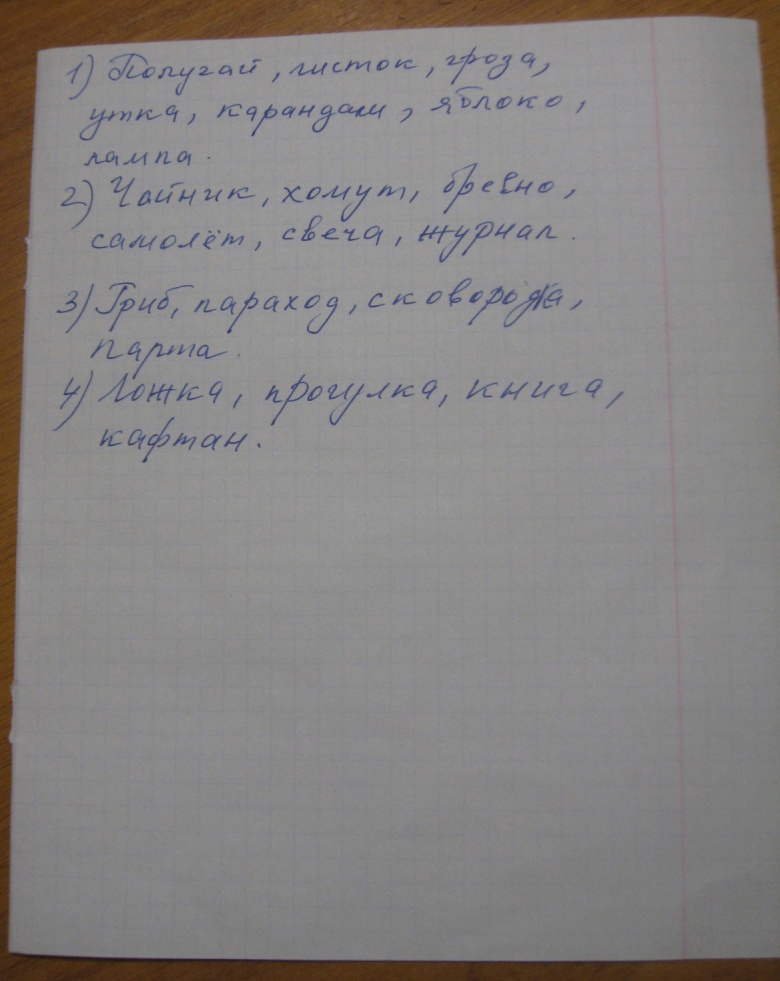 1) Попугай, листок, гроза,
утка, карандаш, яблоко,
лампа.
2) Чайник, хомут, бревно,
самолёт, свеча, журнал.
3) Гриб, параход, сковорода,
парта.
4) Ложка, прогулка, книга,
кафтан.